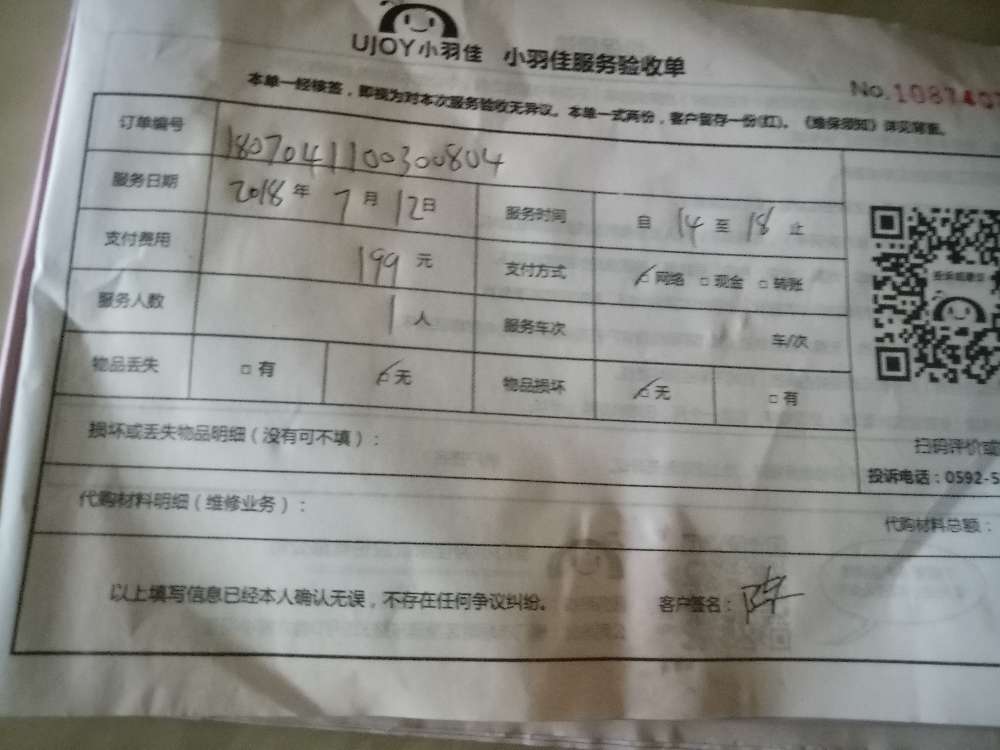 UJOY小羽佳 小羽佳服务验收单
No.108740
本单一经核签，即视为对本次服务验收无异议。本单一式两份，客户留存一份(红)。《维保须知》详见背面。
订单编号 1807041100300804
服务日期 2018年7月12日 服务时间 自14至18止
支付费用 199元 支付方式 ☑网络 □现金 □转账
服务人数 1人 服务车次 车/次
物品丢失 □有 ☑无 物品损坏 ☑无 □有
损坏或丢失物品明细（没有可不填）：
扫码评价或
投诉电话：0592-5
代购材料明细（维修业务）：
代购材料总额：
以上填写信息已经本人确认无误，不存在任何争议纠纷。 客户签名：